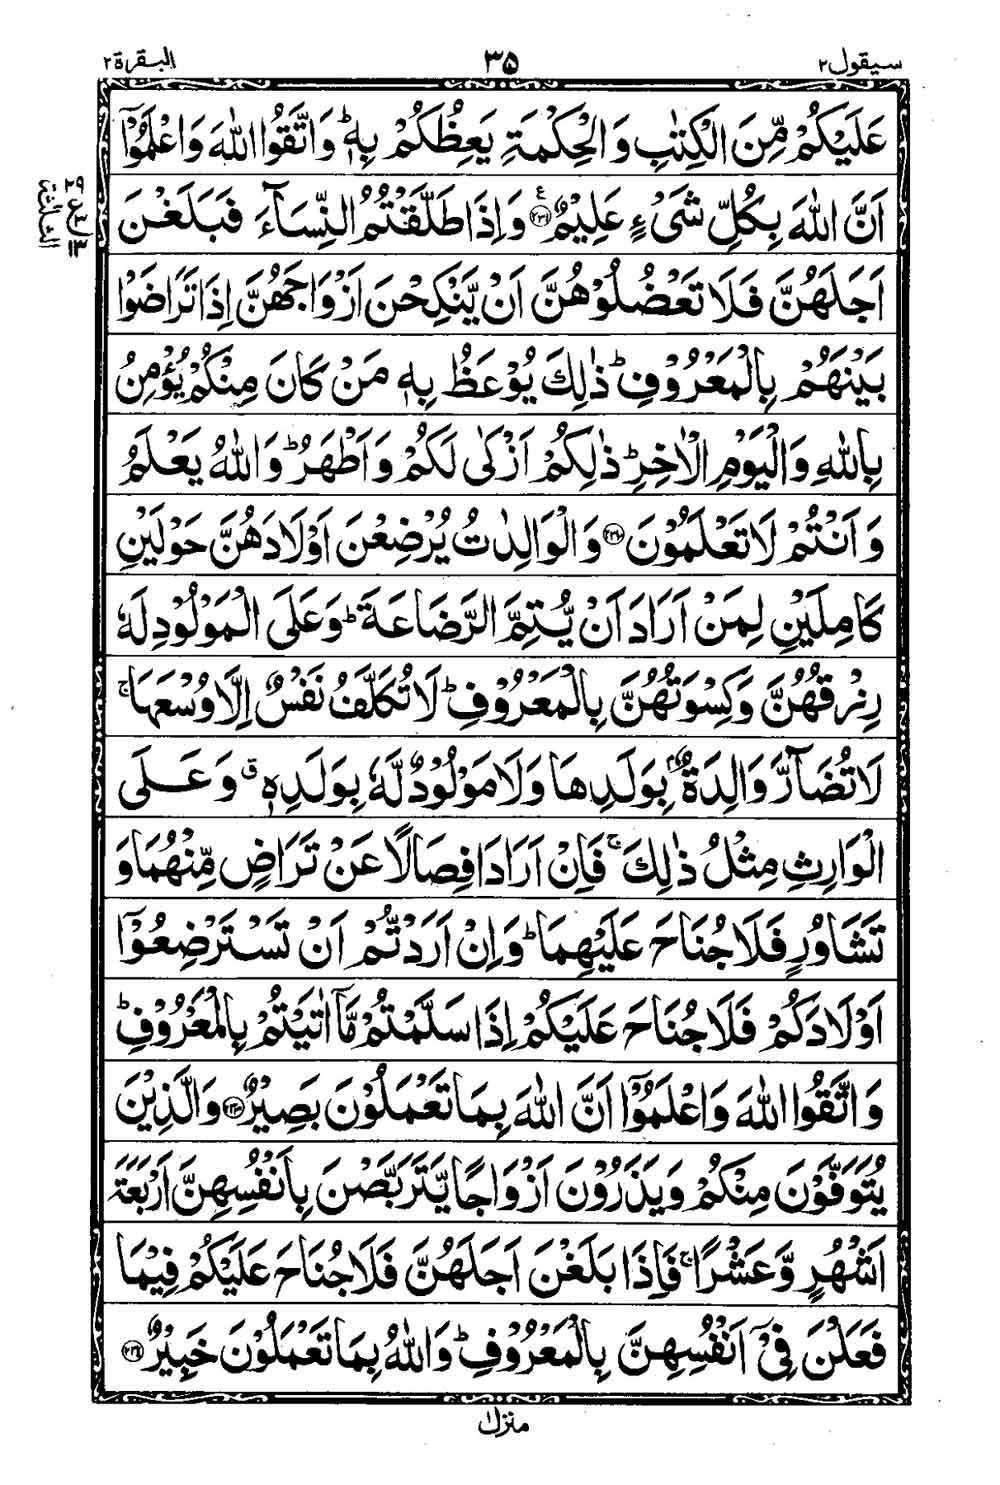 سيقول ٢
٣٥
البقرة ٢
عَلَيْكُمْ مِّنَ الْكِتٰبِ وَالْحِكْمَةِ يَعِظُكُمْ بِهٖ ؕ وَاتَّقُوا اللّٰهَ وَاعْلَمُوْۤا
اَنَّ اللّٰهَ بِكُلِّ شَیْءٍ عَلِيْمٌ ﴿۲۳۱﴾ ع وَاِذَا طَلَّقْتُمُ النِّسَآءَ فَبَلَغْنَ
٢٩
ع
١٣
الثلثة
اَجَلَهُنَّ فَلَا تَعْضُلُوْهُنَّ اَنْ يَّنْكِحْنَ اَزْوَاجَهُنَّ اِذَا تَرَاضَوْا
بَيْنَهُمْ بِالْمَعْرُوْفِ ؕ ذٰلِكَ يُوْعَظُ بِهٖ مَنْ كَانَ مِنْكُمْ يُؤْمِنُ
بِاللّٰهِ وَالْيَوْمِ الْاٰخِرِ ؕ ذٰلِكُمْ اَزْكٰى لَكُمْ وَاَطْهَرُ ؕ وَاللّٰهُ يَعْلَمُ
وَاَنْتُمْ لَا تَعْلَمُوْنَ ﴿۲۳۲﴾ وَالْوَالِدٰتُ يُرْضِعْنَ اَوْلَادَهُنَّ حَوْلَيْنِ
كَامِلَيْنِ لِمَنْ اَرَادَ اَنْ يُّتِمَّ الرَّضَاعَةَ ؕ وَعَلَى الْمَوْلُوْدِ لَهٗ
رِزْقُهُنَّ وَكِسْوَتُهُنَّ بِالْمَعْرُوْفِ ؕ لَا تُكَلَّفُ نَفْسٌ اِلَّا وُسْعَهَا ۚ
لَا تُضَآرَّ وَالِدَةٌۢ بِوَلَدِهَا وَلَا مَوْلُوْدٌ لَّهٗ بِوَلَدِهٖ ۗ وَعَلَى
الْوَارِثِ مِثْلُ ذٰلِكَ ۚ فَاِنْ اَرَادَا فِصَالًا عَنْ تَرَاضٍ مِّنْهُمَا وَ
تَشَاوُرٍ فَلَا جُنَاحَ عَلَيْهِمَا ؕ وَاِنْ اَرَدْتُّمْ اَنْ تَسْتَرْضِعُوْۤا
اَوْلَادَكُمْ فَلَا جُنَاحَ عَلَيْكُمْ اِذَا سَلَّمْتُمْ مَّاۤ اٰتَيْتُمْ بِالْمَعْرُوْفِ ؕ
وَاتَّقُوا اللّٰهَ وَاعْلَمُوْۤا اَنَّ اللّٰهَ بِمَا تَعْمَلُوْنَ بَصِيْرٌ ﴿۲۳۳﴾ وَالَّذِيْنَ
يُتَوَفَّوْنَ مِنْكُمْ وَيَذَرُوْنَ اَزْوَاجًا يَّتَرَبَّصْنَ بِاَنْفُسِهِنَّ اَرْبَعَةَ
اَشْهُرٍ وَّعَشْرًا ۚ فَاِذَا بَلَغْنَ اَجَلَهُنَّ فَلَا جُنَاحَ عَلَيْكُمْ فِيْمَا
فَعَلْنَ فِیْۤ اَنْفُسِهِنَّ بِالْمَعْرُوْفِ ؕ وَاللّٰهُ بِمَا تَعْمَلُوْنَ خَبِيْرٌ ﴿۲۳۴﴾
منزل ١